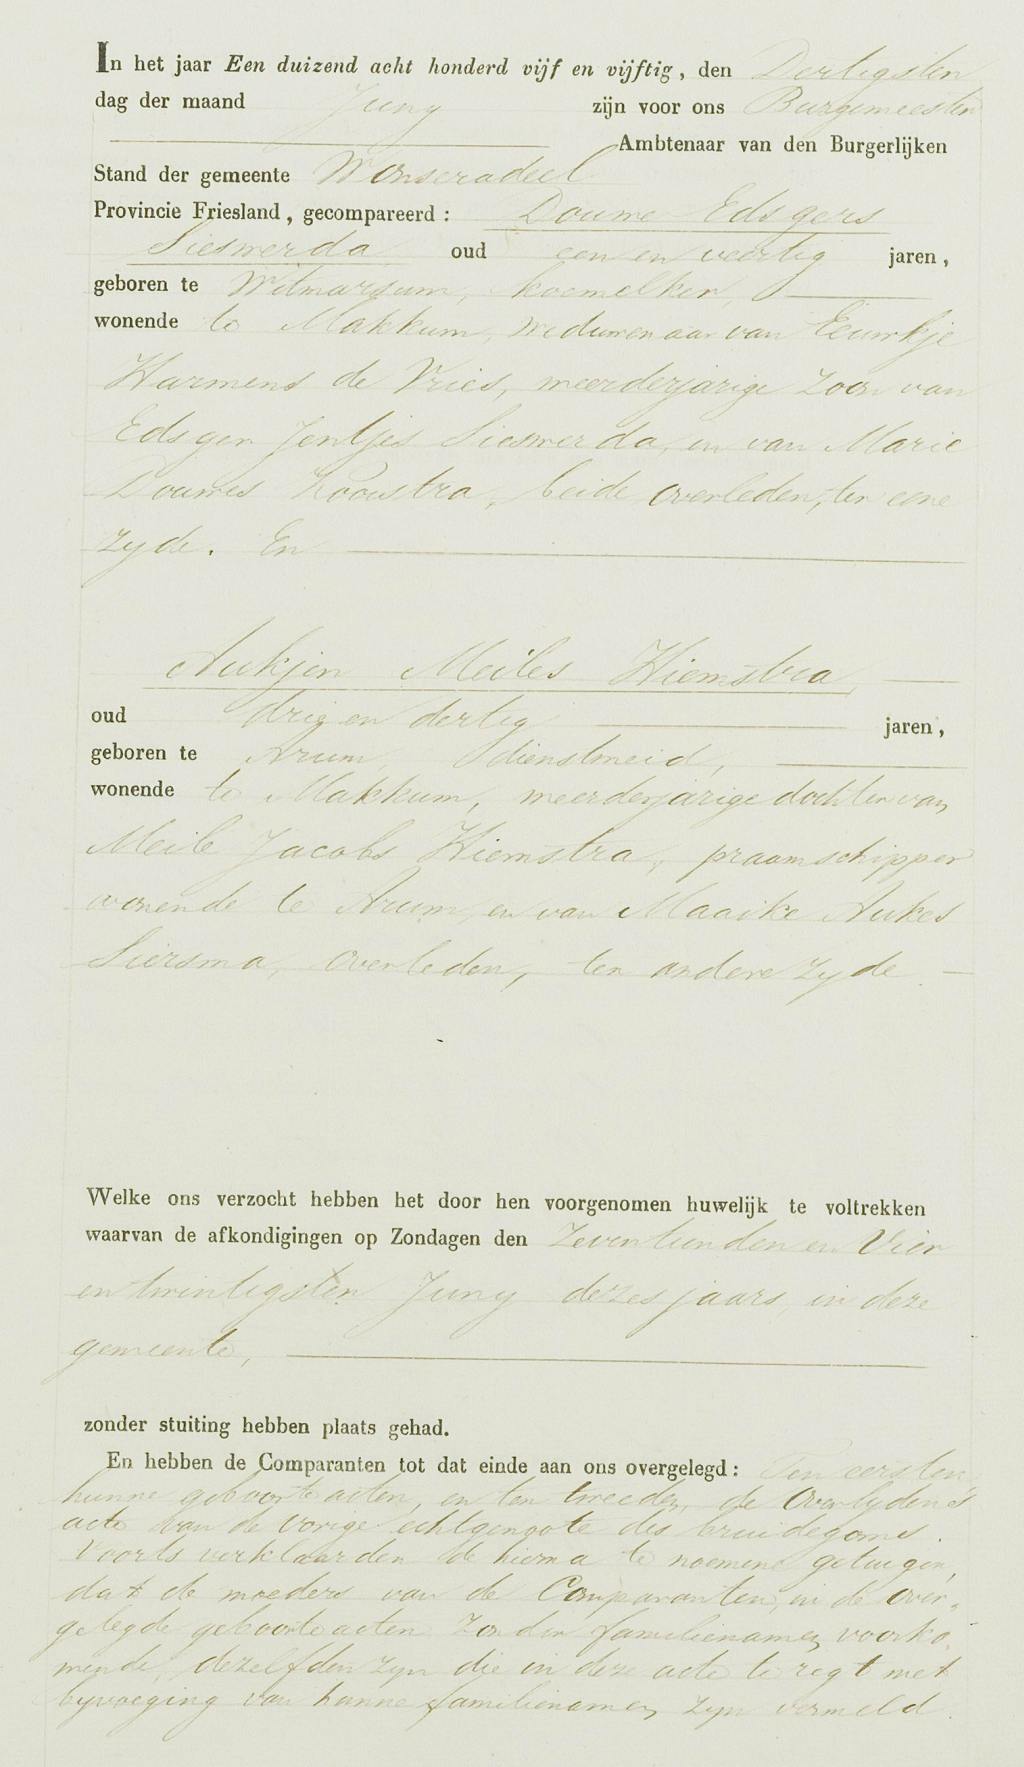 In het jaar Een duizend acht honderd vijf en vijftig, den Dertigsten
dag der maand Juny zijn voor ons Burgemeester
Ambtenaar van den Burgerlijken
Stand der gemeente Wonseradeel
Provincie Friesland, gecompareerd: Doume Edsgers
Sieswerda oud een en veertig jaren,
geboren te Witmarsum, koemelker,
wonende te Makkum, weduwenaar van Eeuwkje
Harmens de Vries, meerderjarige zoon van
Edsger Jentjes Sieswerda, en van Marie
Doumes Kooistra, beide overleden, ter eene
zyde. En
Aukjen Meiles Hiemstra,
oud drie en dertig jaren,
geboren te Arum, dienstmeid,
wonende te Makkum, meerderjarige dochter van
Meile Jacobs Hiemstra, praamschipper
wonende te Arum, en van Maaike Aukes
Siersma, overleden, ter andere zyde
Welke ons verzocht hebben het door hen voorgenomen huwelijk te voltrekken
waarvan de afkondigingen op Zondagen den Zeventienden en Vier
en twintigsten Juny dezes jaars, in deze
gemeente,
zonder stuiting hebben plaats gehad.
En hebben de Comparanten tot dat einde aan ons overgelegd: Ten eersten
hunne geboorte acten, en ten tweeden, de Overlydens
acte van de vorige echtgenoote des bruidegoms.
Voorts verklaarden de hierna te noemene getuigen,
dat de moeders van de Comparanten, in de over-
gelegde geboorteacten zonder familienamen voorko-
mende, dezelfden zyn die in deze acte te regt met
byvoeging van hunne familienamen zyn vermeld.